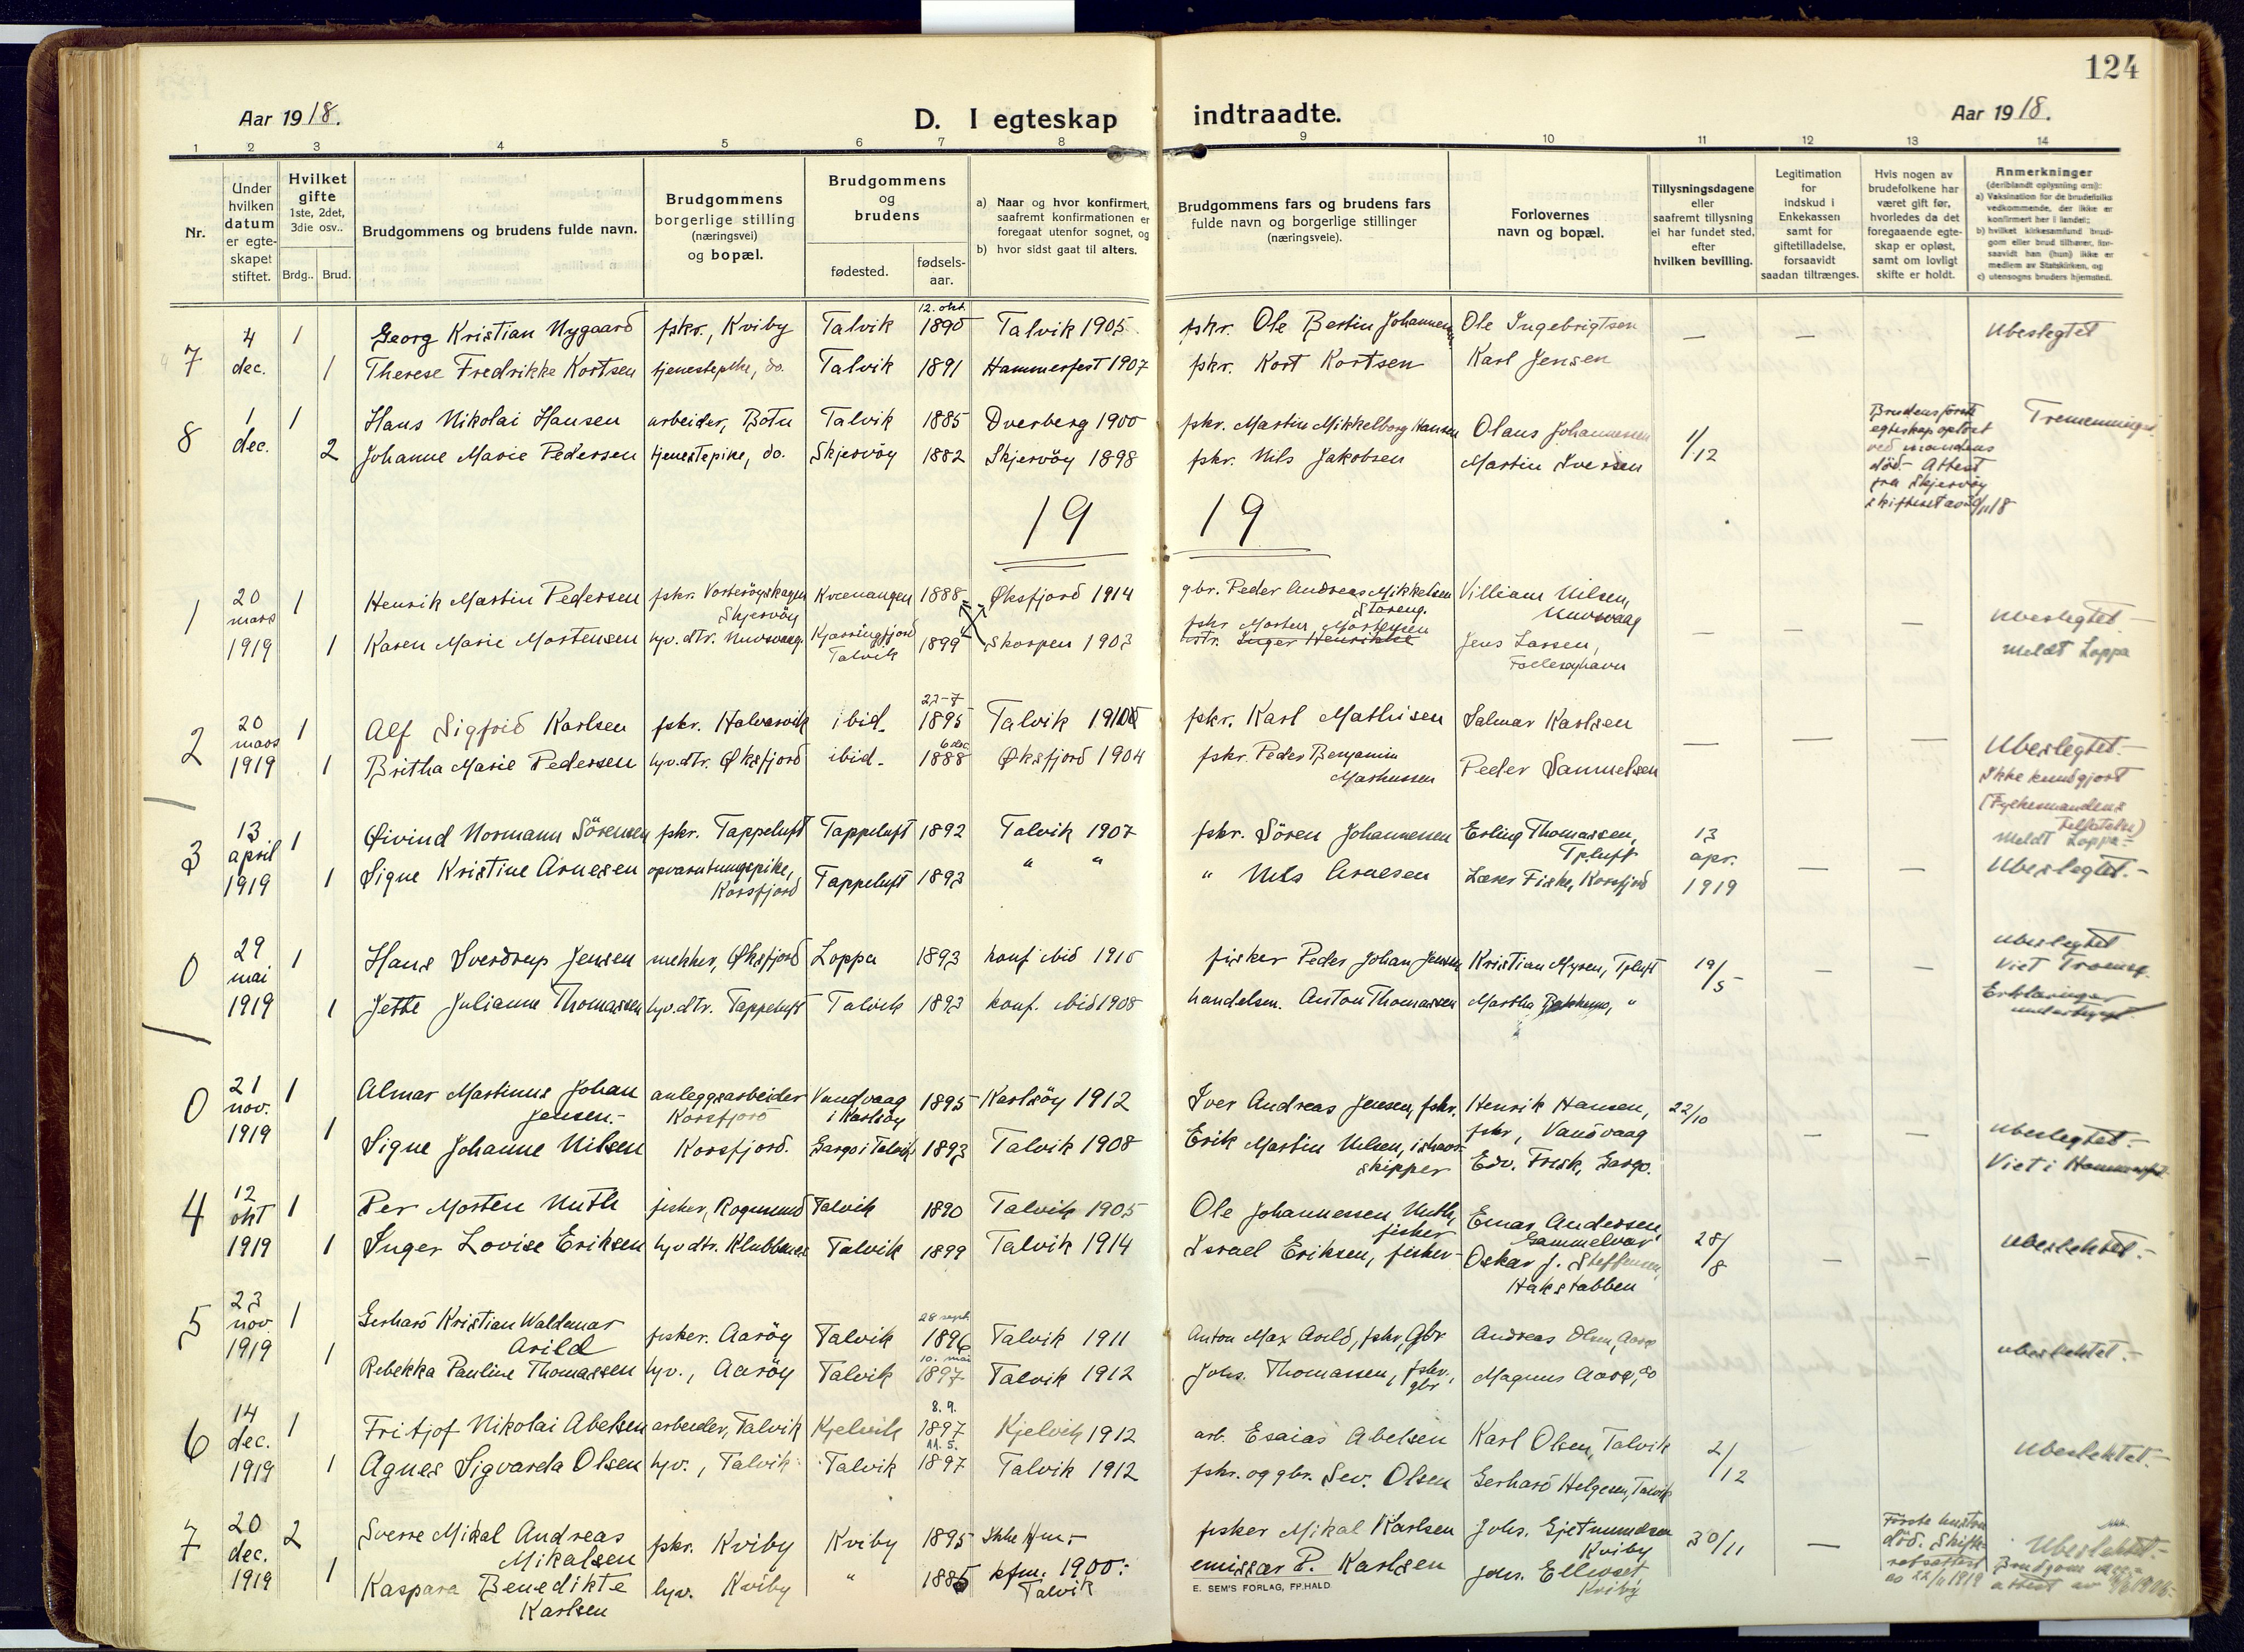 124
Aar 1918.
D. I egteskap indtraadte.
Aar 1918.
1 2 3 4 5 6 7 8 9 10 11 12 13 14
Nr.
Under hvilken datum er egte-skapet stiftet.
Hvilket gifte 1ste, 2det, 3die osv..
Brdg.. Brud.
Brudgommens og brudens fulde navn.
Brudgommens borgerlige stilling (næringsvei) og bopæl.
Brudgommens og brudens
fødested. fødsels-aar.
a) Naar og hvor konfirmert, saafremt konfirmationen er foregaat utenfor sognet, og
b) hvor sidst gaat til alters.
Brudgommens fars og brudens fars fulde navn og borgerlige stillinger (næringsveie).
Forlovernes navn og bopæl.
Tillysningsdagene eller saafremt tillysning ei har fundet sted, efter hvilken bevilling.
Legitimation for indskud i Enkekassen samt for giftetilladelse, forsaavidt saadan tiltrænges.
Hvis nogen av brudefolkene har været gift før, hvorledes da det foregaaende egte-skap er opløst, samt om lovligt skifte er holdt.
Anmerkninger
(deriblandt oplysning om):
a) Vaksination for de brudefolks vedkommende, der ikke er konfirmert her i landet;
b) hvilket kirkesamfund brud-gom eller brud tilhører, for-saavidt han (hun) ikke er medlem av Statskirken, og
c) utensogns bruders hjemsted.
7 4 dec. 1 Georg Kristian Nygaard fskr., Kviby Talvik 12. okt. 1890 Talvik 1905 fskr. Ole Bertin Johannesen Ole Ingebrigtsen — — Ubeslegtet
1 Therese Fredrikke Kortsen tjenestepike, do. Talvik 1891 Hammerfest 1907 fskr. Kort Kortsen Karl Jensen
8 1 dec. 1 Hans Nikolai Hansen arbeider, Botn Talvik 1885 Dverberg 1900 fskr. Martin Mikkelborg Hansen Olaus Johannesen 1/12 Brudens første egteskap opløst ved mandens død. - Attest fra Skjervöy Tremenninger
2 Johanne Marie Pedersen tjenestepike, do. Skjervöy 1882 Skjervöy 1898 fskr. Nils Jakobsen Martin Iversen
19 19
1 20 mars 1919 1 Henrik Martin Pedersen fskr. Skjervöy Kvænangen 1888 Øksfjord 1914 gbr. Peder Andreas Mikkelsen Storeng. Villiam Nilsen, Nuvsvaag — — — Ubeslegtet
1 Karen Marie Mortensen hv. dtr. Nuvsvaag. Kjærringfjord Talvik 1899 Skorpen 1903 fskr Morten Mortensen Inger Henrikke Jens Larsen, meldt Loppa
2 20 mars 1919 1 Alf Sigfrid Karlsen fskr. Halvarvik ibid. 22-7 1895 Talvik 1910 fskr. Karl Mathisen Salmar Karlsen — — — Ubeslegtet.-
1 Britha Marie Pedersen hv. dtr. Øksfjord ibid. 6 dec 1888 Øksfjord 1904 fskr. Peder Benjamin Markussen Peder Samuelsen Ikke kundgjort (Fylkesmandens
Meldt Loppa
3 13 april 1919 1 Øivind Normann Sörensen fskr. Tappeluft Tappeluft 1892 Talvik 1907 fskr. Sören Johannesen Erling Thomassen, Tpluft 13 apr. 1919 — — Ubeslegtet.-
1 Signe Kristine Arnesen opvartningspike, Korsfjord Tappeluft 1893 " " " Nils Arnesen Lærer Fiske, Korsfjord
0 29 mai 1919 1 Hans Sverdrup Jensen snekker, Øksfjord Loppa 1893 konf ibid 1910 fisker Peder Johan Jensen Kristian Myren, Tpluft 19/5 — — Ubeslegtet
1 Jette Julianne Thomassen hv. dtr. Tappeluft Talvik 1893 konf. ibid 1908 handelsm. Anton Thomassen Martha Bakkemo, " Viet Tromsø. Erklæringer
0 21 nov. 1919 1 Almar Martinus Johan Jensen.- anleggsarbeider Korsfjord Vandvaag i Karlsöy 1895 Karlsöy 1912 Iver Andreas Jensen, fskr. Henrik Hansen, fskr, Vandvaag 22/10 — — Ubeslegtet.-
1 Signe Johanne Nilsen Korsfjord. Gargo i Talvik 1893 Talvik 1908 Erik Martin Nilsen, ishavs-skipper Edv. Frisk, Gargo. Viet i Hammerfest
4 12 okt 1919 1 Per Morten Muth fisker, Rognsund Talvik 1890 Talvik 1905 Ole Johannesen Muth, fisker Einar Andersen, 28/8 — — Ubeslektet.-
1 Inger Lovise Eriksen hv dtr. Klubbnes Talvik 1899 Talvik 1914 Israel Eriksen, fisker Oskar J. Steffensen, Hakstabben
5 23 nov 1919 1 Gerhard Kristian Waldemar Arild fisker. Aaröy Talvik 28 sept 1896 Talvik 1911 Anton Max Arild, fskr, Gbr Andreas Olsen, Ubeslektet.-
1 Rebekka Pauline Thomassen hv., Aaröy Talvik 10. mai 1897 Talvik 1912 Johs. Thomassen, fskr., gbr Magnus
6 14 dec. 1919 1 Fritjof Nikolai Abelsen arbeider, Talvik Kjelvik 8. 9. 1897 Kjelvik 1912 arb. Esaias Abelsen Karl Olsen, Talvik 2/12 Ubeslektet.-
1 Agnes Sigvarda Olsen hv., Talvik Talvik 11. 5. 1897 Talvik 1912 fskr. og gbr. Sev. Olsen Gerhard Helgesen, Talvik
7 20 dec. 1919 2 Sverre Mikal Andreas Mikalsen fskr. Kviby Kviby 1895 Ikke kfm.- fisker Mikal Karlsen Johs. Gjetmundsen Kviby 30/11 — Første hustru död. Skifte-retsattest av 22/11 1919 Ubeslektet.-
1 Kaspara Benedikte Karlsen hv. Kviby " 1885 kfm. 1900: Talvik emissær P. Karlsen Johs. Ellivset Kviby Brudgom
E. SEM'S FORLAG, FP.HALD